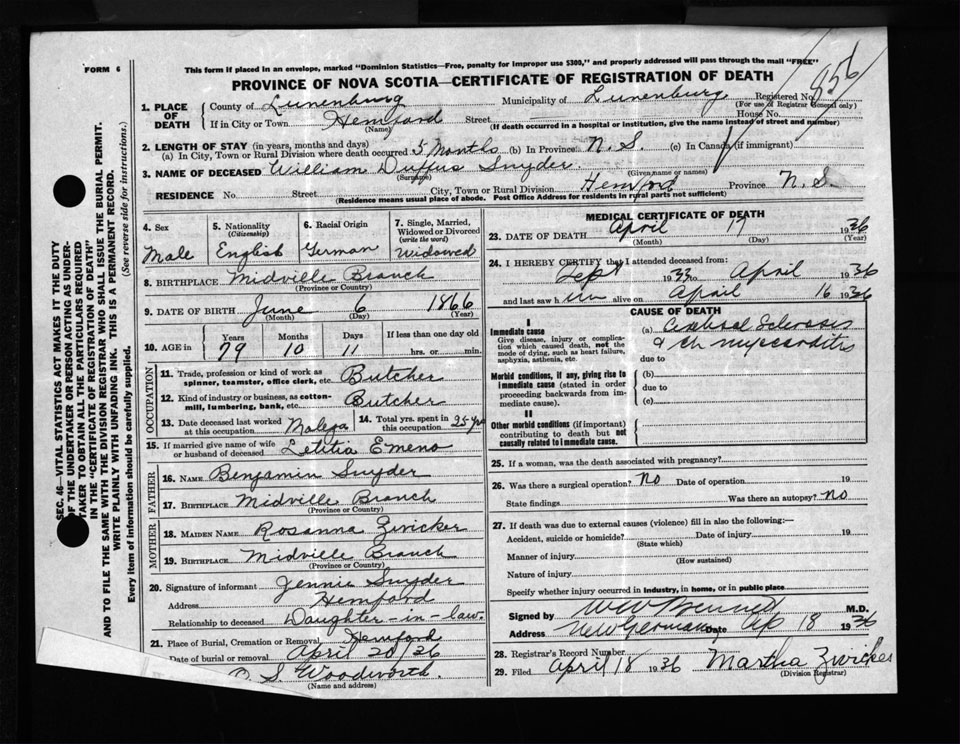 FORM 6
This form if placed in an envelope, marked "Dominion Statistics—Free, penalty for improper use $300," and properly addressed will pass through the mail "FREE"
PROVINCE OF NOVA SCOTIA—CERTIFICATE OF REGISTRATION OF DEATH
856
1. PLACE OF DEATH { County of Lunenburg Municipality of Lunenburg Registered No.
(For use of Registrar General only)
If in City or Town Hemford Street House No.
(Name) (If death occurred in a hospital or institution, give the name instead of street and number)
2. LENGTH OF STAY (in years, months and days)
(a) In City, Town or Rural Division where death occurred 5 Months (b) In Province N. S. (c) In Canada (if immigrant)
3. NAME OF DECEASED William Duffus Snyder.
(Surname) (Given name or names)
RESIDENCE No. Street City, Town or Rural Division Hemford Province N. S.
(Residence means usual place of abode. Post Office Address for residents in rural parts not sufficient)
SEC. 46—VITAL STATISTICS ACT MAKES IT THE DUTY
OF THE UNDERTAKER OR PERSON ACTING AS UNDER-
TAKER TO OBTAIN ALL THE PARTICULARS REQUIRED
IN THE "CERTIFICATE OF REGISTRATION OF DEATH"
AND TO FILE THE SAME WITH THE DIVISION REGISTRAR WHO SHALL ISSUE THE BURIAL PERMIT.
WRITE PLAINLY WITH UNFADING INK. THIS IS A PERMANENT RECORD.
Every item of information should be carefully supplied. (See reverse side for instructions.)
4. Sex 5. Nationality (Citizenship) 6. Racial Origin 7. Single, Married, Widowed or Divorced (write the word)
Male English German Widowed
8. BIRTHPLACE Midville Branch
(Province or Country)
9. DATE OF BIRTH June 6 1866
(Month) (Day) (Year)
10. AGE in { Years Months Days If less than one day old
79 10 11 hrs. or min.
OCCUPATION
11. Trade, profession or kind of work as spinner, teamster, office clerk, etc. Butcher
12. Kind of industry or business, as cotton-mill, lumbering, bank, etc. Butcher
13. Date deceased last worked at this occupation Malega 14. Total yrs. spent in this occupation 25 yrs
15. If married give name of wife or husband of deceased Letitia Emeno
FATHER
16. NAME Benjamin Snyder
17. BIRTHPLACE Midville Branch
(Province or Country)
MOTHER
18. MAIDEN NAME Rosanna Zwicker
19. BIRTHPLACE Midville Branch
(Province or Country)
20. Signature of informant Jennie Snyder
Address Hemford
Relationship to deceased Daughter-in-law.
21. Place of Burial, Cremation or Removal Hemford
Date of burial or removal April 20/36
S. Woodworth
(Name and address)
MEDICAL CERTIFICATE OF DEATH
23. DATE OF DEATH April 17 1936
(Month) (Day) (Year)
24. I HEREBY CERTIFY that I attended deceased from:
Sept 1933 to April 1936
and last saw him alive on April 16 1936
CAUSE OF DEATH
I
Immediate cause
Give disease, injury or complication which caused death, not the mode of dying, such as heart failure, asphyxia, asthenia, etc.
(a) Cerebral Sclerosis
& Ch myocarditis
due to
Morbid conditions, if any, giving rise to immediate cause (stated in order proceeding backwards from immediate cause).
(b)
due to
(c)
II
Other morbid conditions (if important) contributing to death but not causally related to immediate cause.
25. If a woman, was the death associated with pregnancy?
26. Was there a surgical operation? No Date of operation 19
State findings Was there an autopsy? No
27. If death was due to external causes (violence) fill in also the following:—
Accident, suicide or homicide? Date of injury 19
(State which)
Manner of injury
(How sustained)
Nature of injury
Specify whether injury occurred in industry, in home, or in public place
Signed by M.D.
Address New Germany Date Ap 18 1936
28. Registrar's Record Number
29. Filed April 18 1936 Martha Zwicker
(Division Registrar)